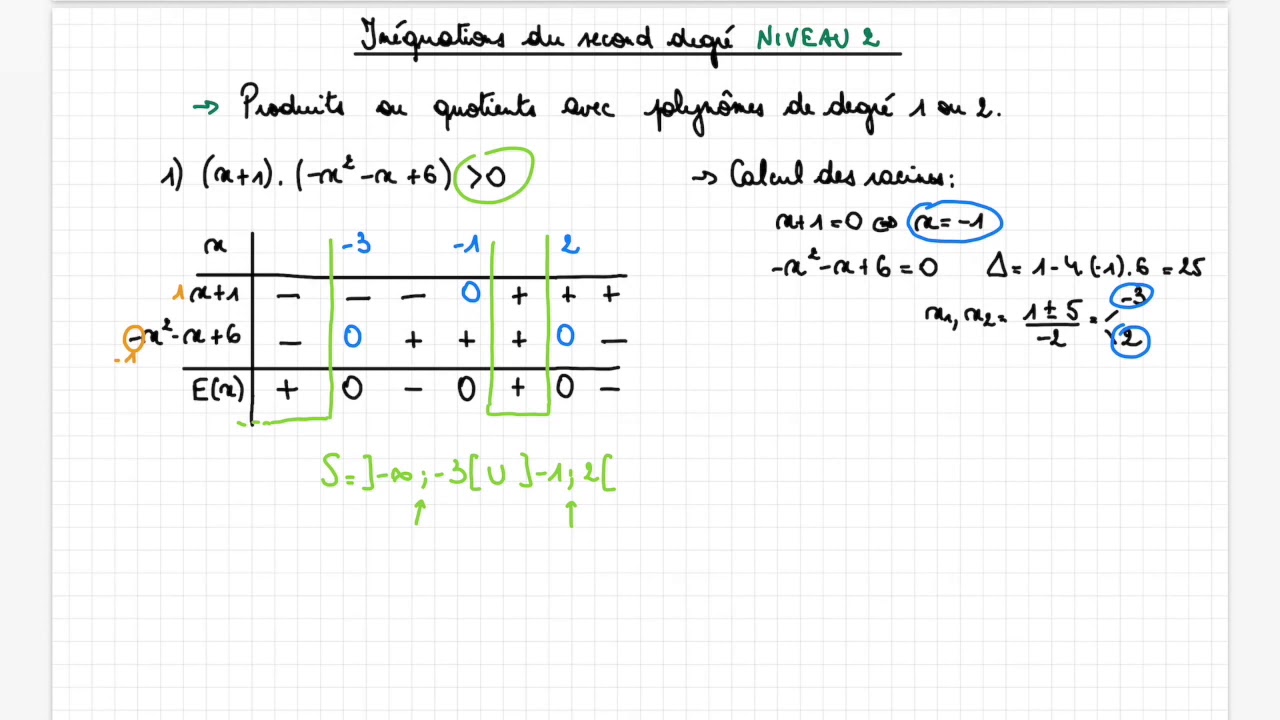 Inéquations du second degré NIVEAU 2
→ Produits ou quotients avec polynômes de degré 1 ou 2.
1) (x+1).(-x²-x+6) >0
x -3 -1 2
1 x+1 − − − 0 + + +
-x²-x+6 − 0 + + + 0 −
-1
E(x) + 0 − 0 + 0 −
S=]-∞;-3[ U ]-1;2[
→ Calcul des racines:
x+1=0 ⇔ x=-1
-x²-x+6=0 Δ= 1-4(-1).6 =25
x1, x2= 1±5/-2 = -3
2